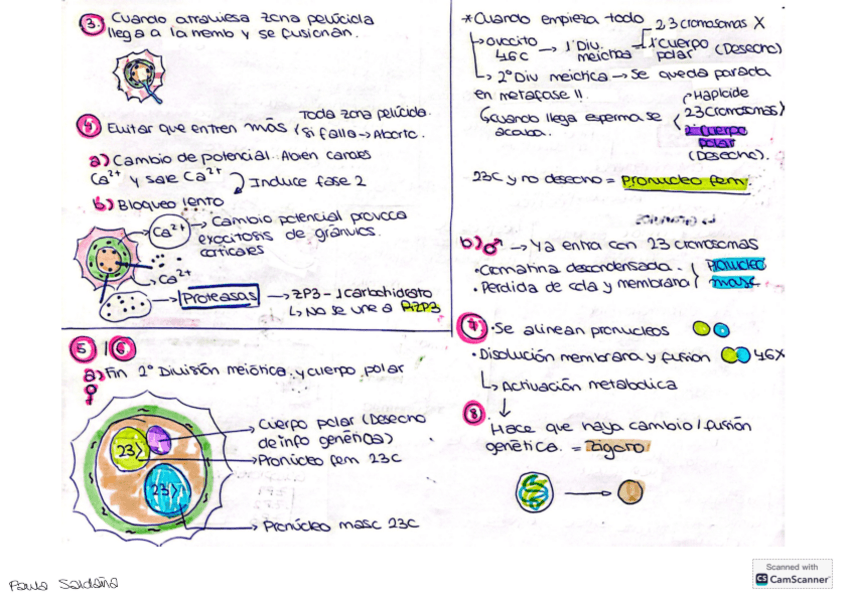 3. Cuando atraviesa zona pelúcida
llega a la memb y se fusionan.
4 Evitar que entren más (Toda zona pelúcida.
si falla → Aborto.
a) Cambio de potencial. Abren canales
Ca2+ y sale Ca2+
Induce fase 2
b) Bloqueo lento
Ca2+
Cambio potencial provoca
exocitosis de gránulos
corticales
Ca2+
Proteasas → ZP3 - ↓carbohidrato
↳ No se une a RZP3
5 / 6
a) Fin 2º División meiótica y cuerpo polar
♀
Cuerpo polar (Desecho
de info genética)
23
Pronúcleo fem 23C
23
Pronúcleo masc 23C
*Cuando empieza todo
ovocito
46C
→ 1ª Div.
meiótica
23 cromosomas X
1º cuerpo
polar
(Desecho)
↳ 2º Div meiótica → Se queda parada
en metafase II.
Cuando llega esperma se
acaba.
Haploide
23 cromosomas
2º cuerpo
polar
(Desecho).
23C y no desecho = Pronucleo fem.
b) ♂ → Ya entra con 23 cromosomas
• Cromatina descondensada.
• Perdida de cola y membrana
Pronucleo
masc
7 • Se alinean pronucleos
• Disolución membrana y fusion 46X
↳ Activación metabolica
↓
8 Hace que haya cambio / fusión
genética. = Zigoto
Paula Saldaña
Scanned with
CS CamScanner